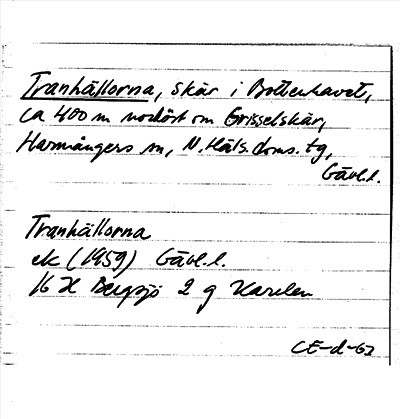 Tranhällorna, skär i Bottenhavet,
ca 400 m nordöst om Grisselskär,
Harmångers sn, N. Häls. doms. tg,
Gävl.l.
Tranhällorna
ek (1959) Gävl.l.
16 H Bergsjö 2 g Kartan
CE-d-62